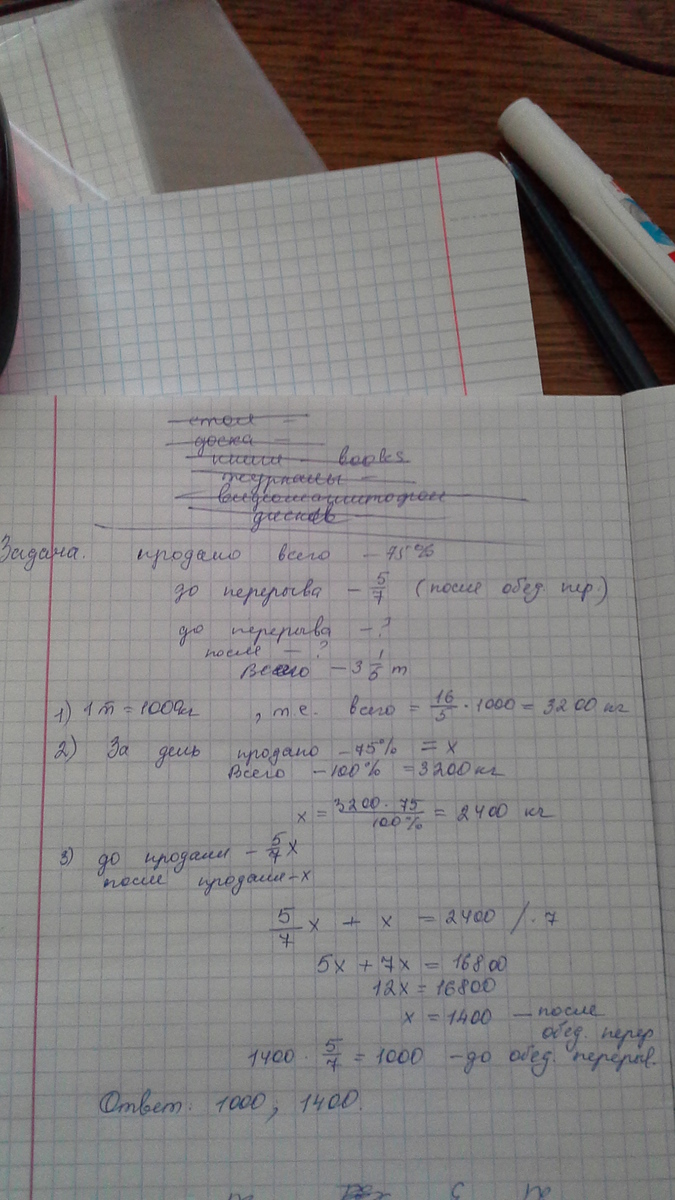 стол –
доска –
книги – books
журналы –
видеомагнитофон
дисков
Задача. продано всего – 75%
до перерыва – 5/7 (после обед. пер.)
до перерыва – ?
после – ?
Всего – 3 1/5 т
1) 1 т = 1000кг, т.е. всего = 16/5 · 1000 = 3200 кг
2) За день продано – 75% = x
Всего – 100% = 3200 кг
x = 3200 · 75 / 100% = 2400 кг
3) до продали – 5/7 x
после продали – x
5/7 x + x = 2400 / · 7
5x + 7x = 16800
12x = 16800
x = 1400 – после
обед. перер
1400 · 5/7 = 1000 – до обед. перерыв.
Ответ: 1000, 1400.